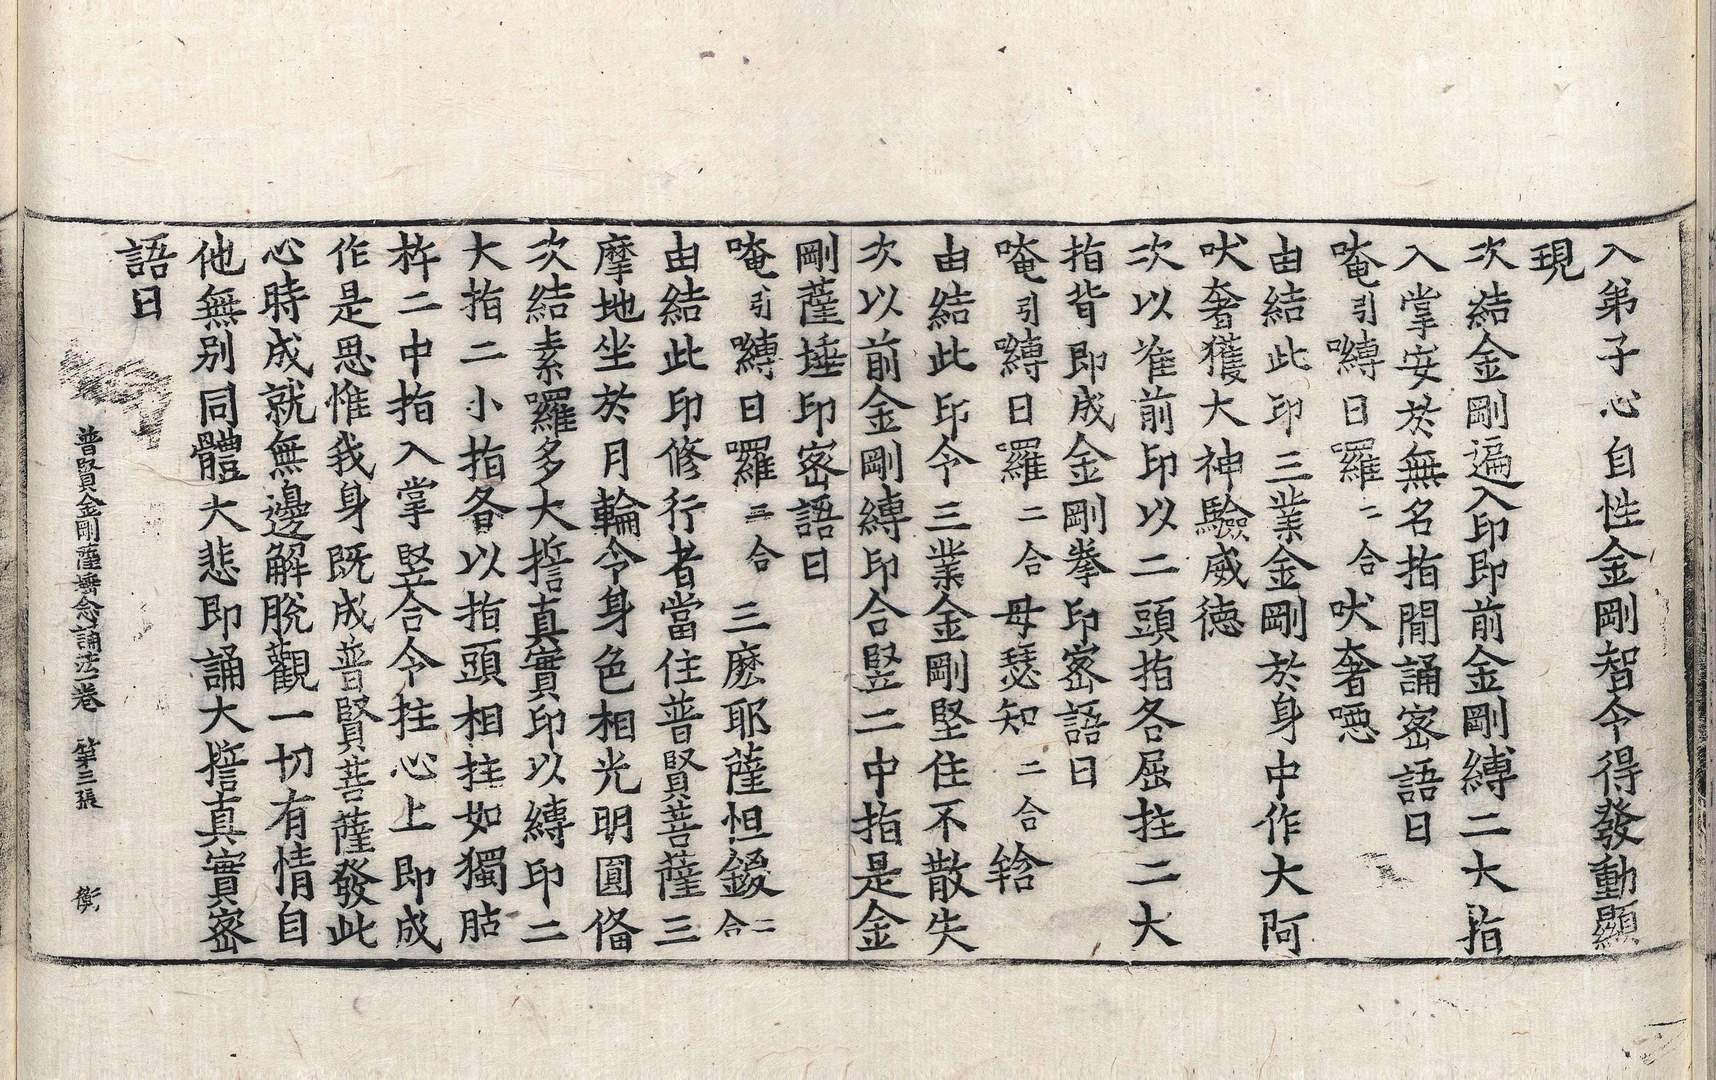 入弟子心自性金剛智令得發動顯
現
次結金剛遍入印即前金剛縛二大指
入掌安於無名指間誦密語曰
唵引嚩日羅二合吠奢噁
由結此印三業金剛於身中作大阿
吠奢獲大神驗威德
次以准前印以二頭指各屈拄二大
指背即成金剛拳印密語曰
唵引嚩日羅二合母瑟知二合鋡
由結此印令三業金剛堅住不散失
次以前金剛縛印合竪二中指是金
剛薩埵印密語曰
唵引嚩日羅二合三麽耶薩怛鑁二合
由結此印修行者當住普賢菩薩三
摩地坐於月輪令身色相光明圓俻
次結素囉多大誓真實印以縛印二
大指二小指各以指頭相拄如獨股
杵二中指入掌竪合令拄心上即成
作是思惟我身既成普賢菩薩發此
心時成就無邊解脫觀一切有情自
他無別同體大悲即誦大誓真實密
語曰
普賢金剛薩埵念誦法一卷 第三張 衡